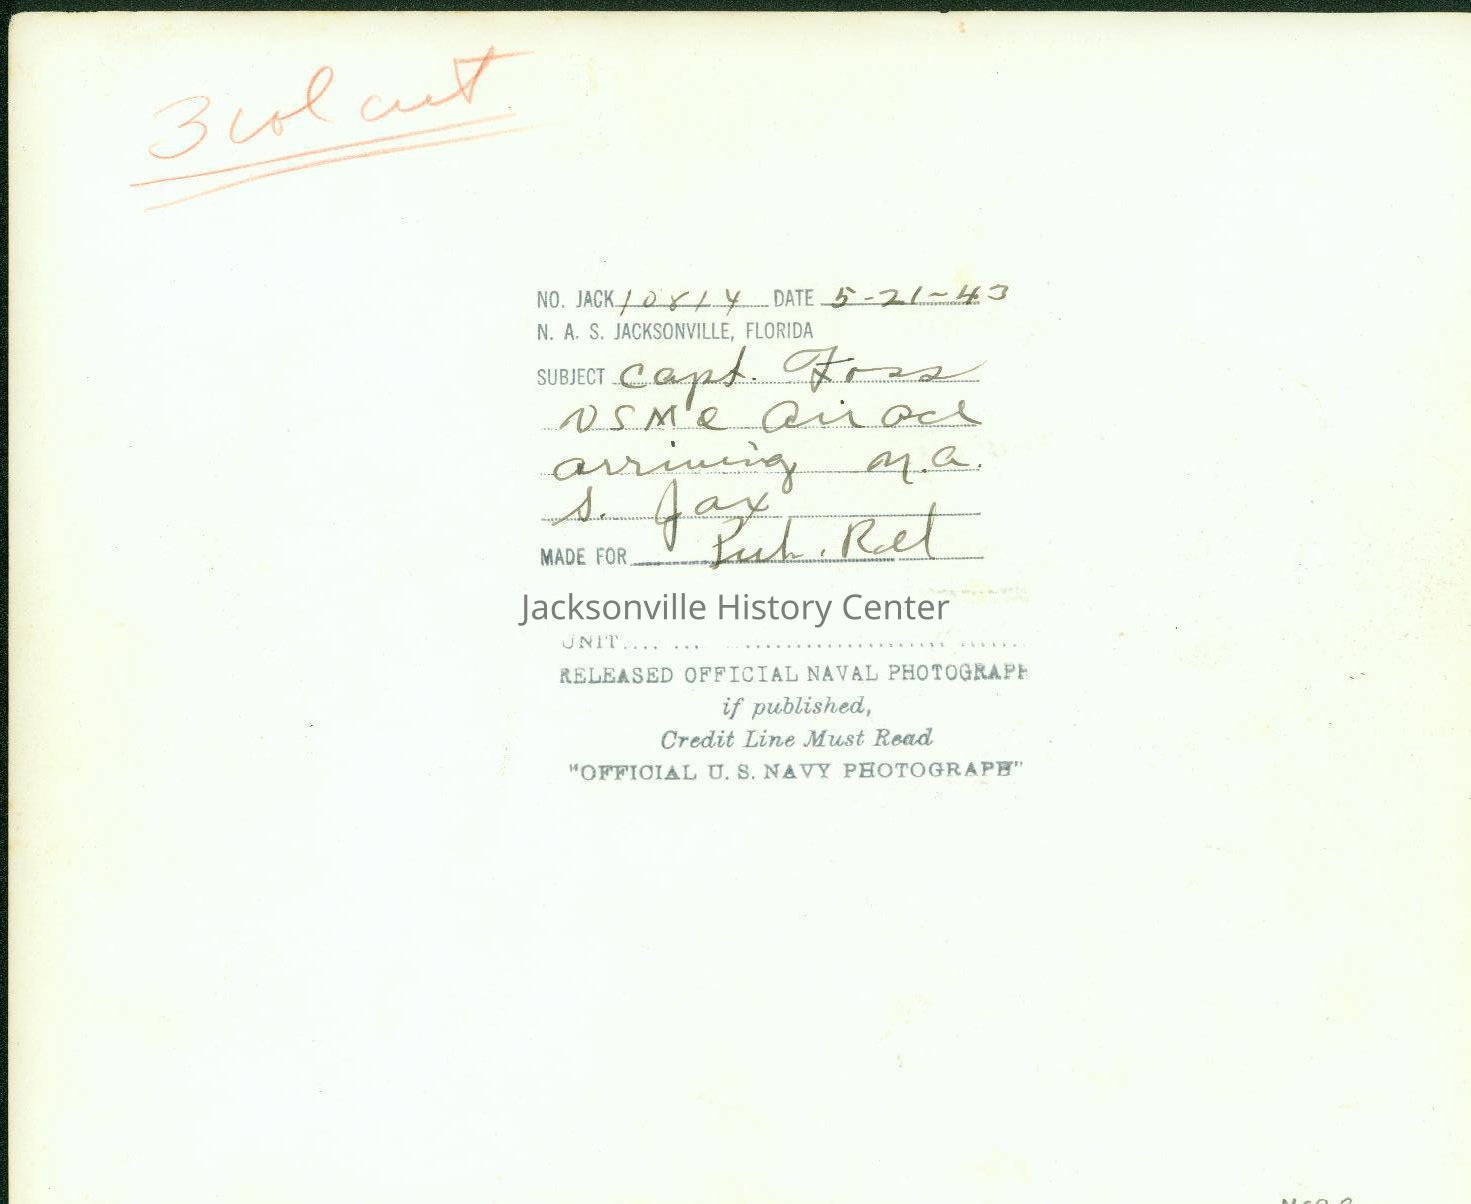 3 col cut
NO. JACK 10814 DATE 5-21-43
N. A. S. JACKSONVILLE, FLORIDA
SUBJECT Capt. Foss
USMC Air Ace
arriving N.A.
S. Jax
MADE FOR Pub. Rel
Jacksonville History Center
UNIT
RELEASED OFFICIAL NAVAL PHOTOGRAPH
if published,
Credit Line Must Read
"OFFICIAL U. S. NAVY PHOTOGRAPH"